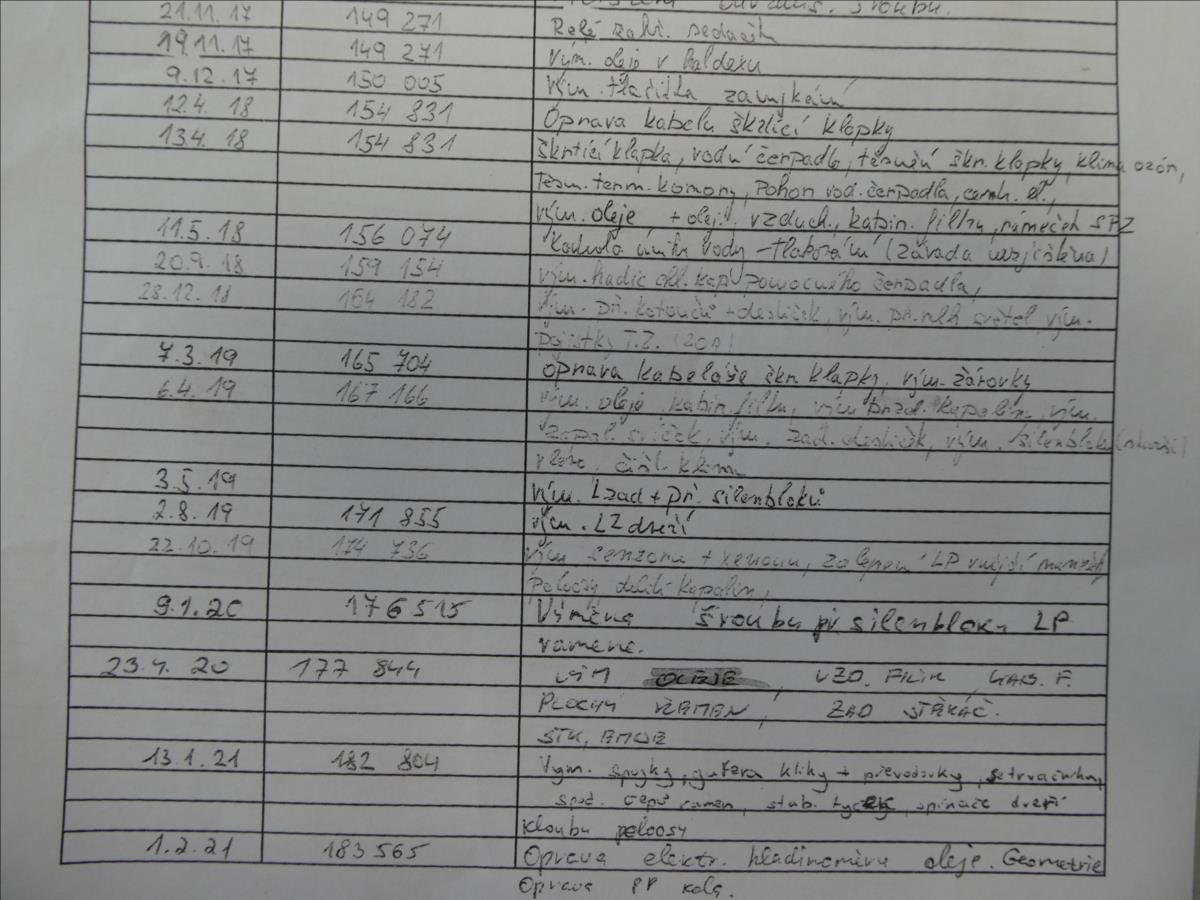 21.11.17 149 271 Relé
19.11.17 149 271 Vým. oleje v haldexu
9.12.17 150 005 Vým. tlačítka zamykání
12.4. 18 154 831 Oprava kabelu škrtící klapky
13.4. 18 154 831 škrtící klapka, vodní čerpadlo, těsnění škr. klapky, klima ozón,
těsn. term. komory, pohon vod. čerpadla,
vým. oleje + olej. vzduch. kabin. filtru, rámeček SPZ
11.5.18 156 074 Kontrola úniku vody - tlakování (závada nezjištěna)
20.9.18 159 154 vým. hadic chl. kap. pomocného čerpadla,
28.12.18 164 182 Vým. př. kotoučů + destiček, vým. př. mlh světel, vým.
pojistky T.Z. (20A)
7.3.19 165 704 oprava kabeláže škr. klapky, vým. žárovky
6.4.19 167 166 Vým. oleje, kabin. filtru, vým brzd. kapaliny, vým.
zapal. svíček, vým. zad. destiček, vým. silenbloku
čišt. klima
3.5.19 vým. Lzad + př. silenbloků
2.8.19 171 855 vým. LZ dveří
22.10.19 174 736 vým senzoru + xenonu, zalepení LP vnější manžety
poloosy, kapalin,
9.1.20 176 515 Výměna šroubu př silenbloku LP
ramene.
23.4.20 177 844 VÝM OLEJE, VZD. FILTR, KAB. F.
PLOCHÝ ŘEMEN, ZAD STĚRAČ.
STK, EMISE
13.1.21 182 804 Vým. spojky, gufera kliky + převodovky, setrvačníku,
spod. čepů ramen, stab. tyček, spínače dveří
kloubu poloosy
1.2.21 183 565 Oprava elektr. hladinoměru oleje. Geometrie
Oprava PP kola.